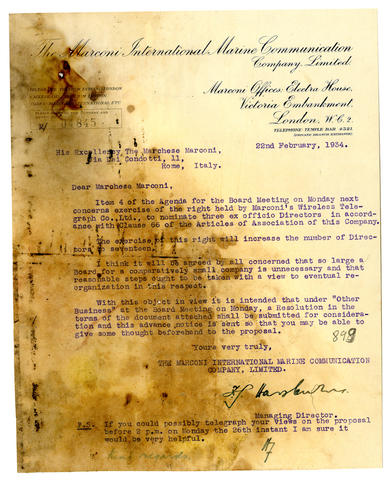 The Marconi International Marine Communication
Company, Limited.
Marconi Offices, Electra House,
Victoria Embankment,
London, W.C.2.
TELEPHONE: TEMPLE BAR 4321
22nd February, 1934.
His Excellency The Marchese Marconi,
Via Dei Condotti, 11,
Rome, Italy.
Dear Marchese Marconi,
Item 4 of the Agenda for the Board Meeting on Monday next
concerns exercise of the right held by Marconi's Wireless Tele-
graph Co., Ltd., to nominate three ex officio Directors in accord-
ance with Clause 66 of the Articles of Association of this Company.
The exercise of this right will increase the number of Direc-
tors to seventeen.
I think it will be agreed by all concerned that so large a
Board for a comparatively small company is unnecessary and that
reasonable steps ought to be taken with a view to eventual re-
organization in this respect.
With this object in view it is intended that under "Other
Business" at the Board Meeting on Monday, a Resolution in the
terms of the document attached shall be submitted for considera-
tion and this advance notice is sent so that you may be able to
give some thought beforehand to the proposal.
Yours very truly,
THE MARCONI INTERNATIONAL MARINE COMMUNICATION
COMPANY, LIMITED.
Managing Director.
P.S. If you could possibly telegraph your views on the proposal
before 2 p.m. on Monday the 26th instant I am sure it
would be very helpful.
kind regards.